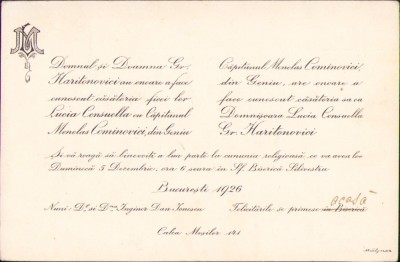 M
Domnul și Doamna Gr.
Haritonovici au onoare a face
cunoscut căsătoria fiicei lor
Lucia Consuella cu Căpitanul
Menelas Cominovici, din Geniu
Căpitanul Menelas Cominovici,
din Geniu, are onoare a
face cunoscut căsătoria sa cu
Domnișoara Lucia Consuella
Gr. Haritonovici
Și vă roagă să binevoiți a lua parte la cununia religioasă ce va avea loc
Duminecă 5 Decembrie, ora 6 seara în Sf. Biserică Silvestru
București 1926
acasă
Nuni: Dl și Dna Inginer Dan Ionescu
Felicitările se primesc în Biserică
Calea Moșilor 131